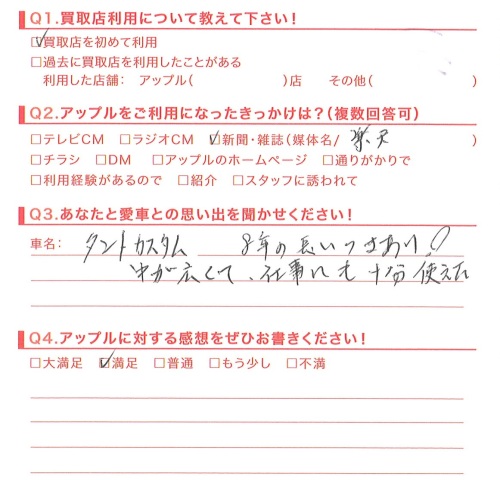 Q1.買取店利用について教えて下さい！
☑買取店を初めて利用
□過去に買取店を利用したことがある
利用した店舗： アップル（ ）店 その他（ ）
Q2.アップルをご利用になったきっかけは？（複数回答可）
□テレビCM □ラジオCM ☑新聞・雑誌（媒体名/ 楽天 ）
□チラシ □DM □アップルのホームページ □通りがかりで
□利用経験があるので □紹介 □スタッフに誘われて
Q3.あなたと愛車との思い出を聞かせください！
車名： タントカスタム 8年の長いつきあい！
中が広くて、仕事にも十分使えた
Q4.アップルに対する感想をぜひお書きください！
□大満足 ☑満足 □普通 □もう少し □不満